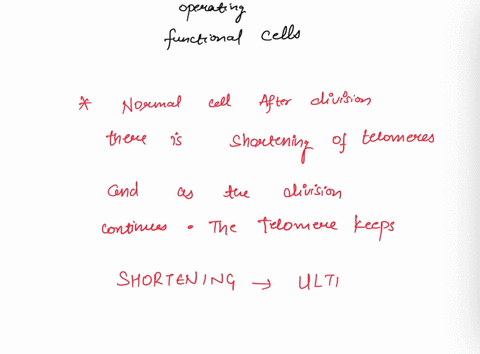 operating
functional cells
* Normal cell After division
there is shortening of telomeres
and as the division
continues . The Telomere keeps
SHORTENING → ULTI